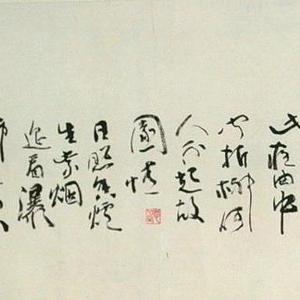 此夜曲中
闻折柳何
人不起故
園情
日照香爐
生紫烟
遥看瀑